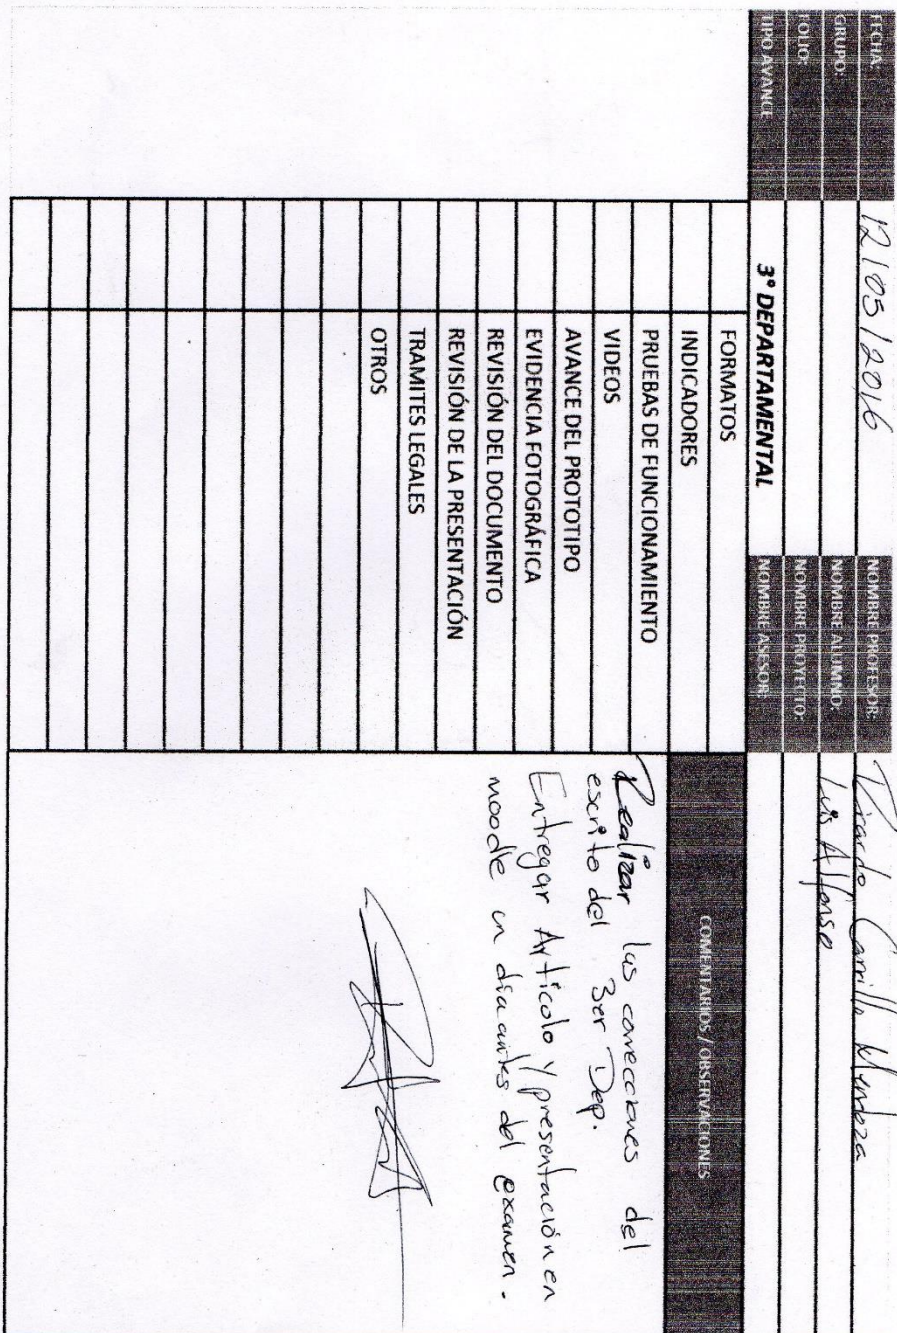 FECHA: 12/05/2016 NOMBRE PROFESOR: Ricardo Carrillo Mendoza
GRUPO: NOMBRE ALUMNO: Luis Alfonso
FOLIO: NOMBRE PROYECTO:
TIPO AVANCE 3° DEPARTAMENTAL NOMBRE ASESOR:
FORMATOS
INDICADORES
PRUEBAS DE FUNCIONAMIENTO
VIDEOS
AVANCE DEL PROTOTIPO
EVIDENCIA FOTOGRÁFICA
REVISIÓN DEL DOCUMENTO
REVISIÓN DE LA PRESENTACIÓN
TRAMITES LEGALES
OTROS
COMENTARIOS / OBSERVACIONES
Realizar las correcciones del
escrito del 3er Dep.
Entregar Artículo y presentación en
moodle un día antes del examen.